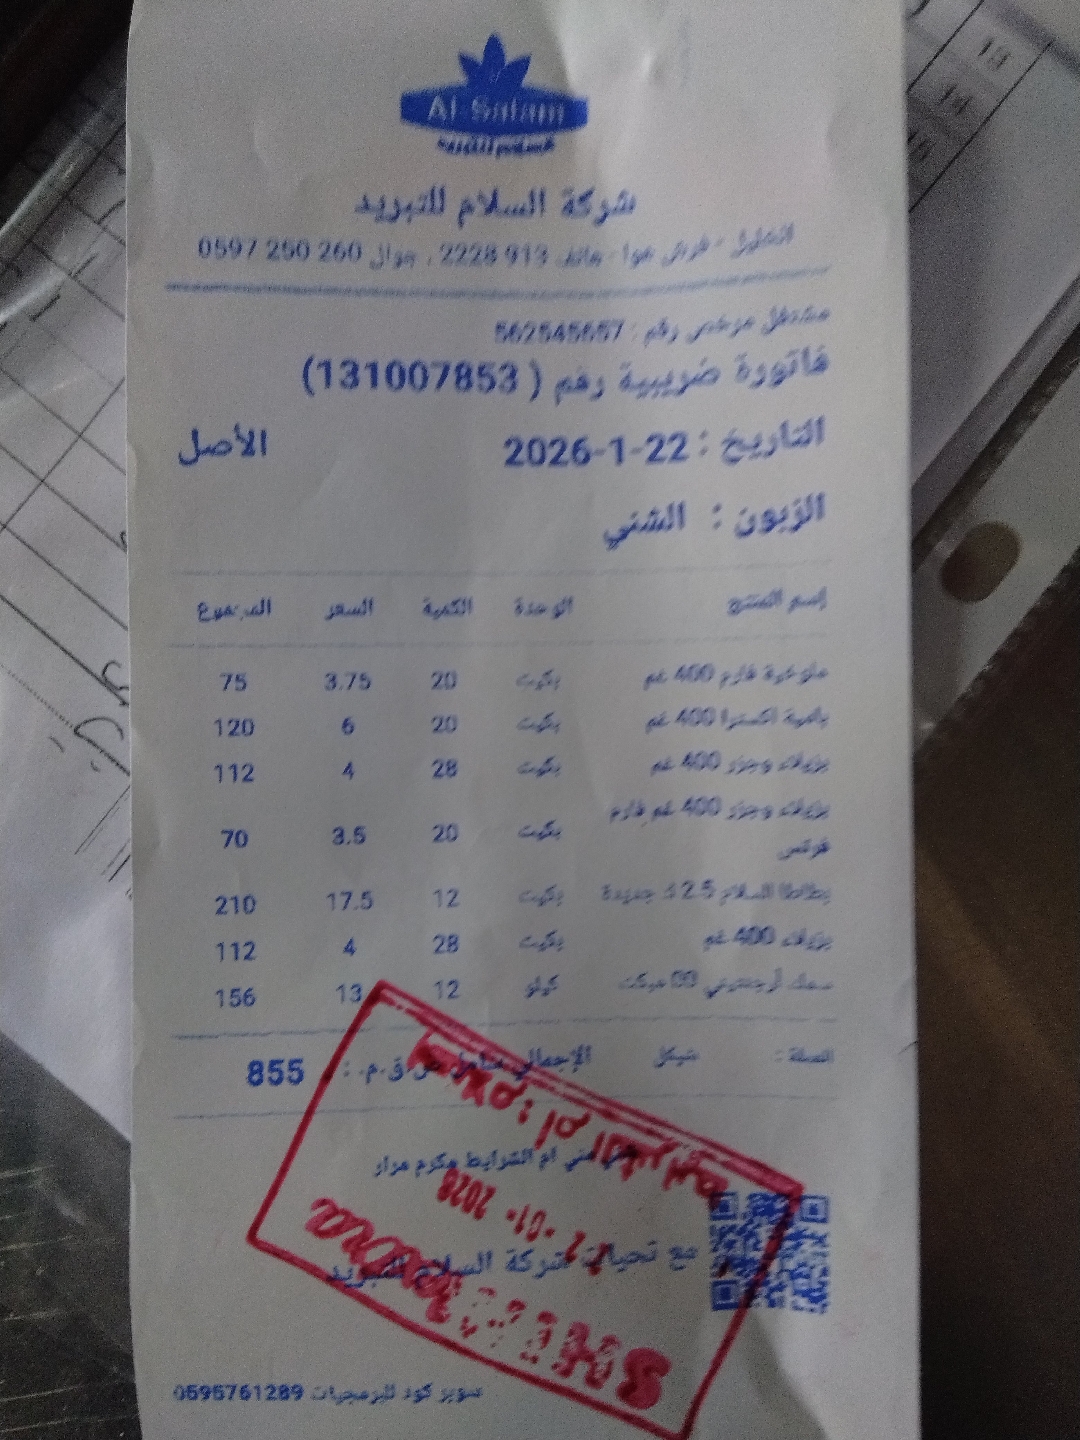 Al-Salam
شركة السلام للتبريد
الخليل - فرش هوا - هاتف 2228 913 ، جوال 0597 250 260
مشتغل مرخص رقم : 562545657
فاتورة ضريبية رقم ( 131007853)
التاريخ : 22-1-2026 الأصل
الزبون : الشني
إسم المنتج الوحدة الكمية السعر المجموع
ملوخية فارم 400 غم بكيت 20 3.75 75
بامية اكسترا 400 غم بكيت 20 6 120
بزيلاء وجزر 400 غم بكيت 28 4 112
بزيلاء وجزر 400 غم فارم
فرتس بكيت 20 3.5 70
بطاطا السلام 2.5 ك جديدة بكيت 12 17.5 210
بزيلاء 400 غم بكيت 28 4 112
سمك أرجنتيني كيلو 12 13 156
العملة : شيكل الإجمالي شامل ض.ق.م. : 855
ام الشرايط مكرم مرار
مع تحيات شركة السلام للتبريد
سوبر كود للبرمجيات 0595761289